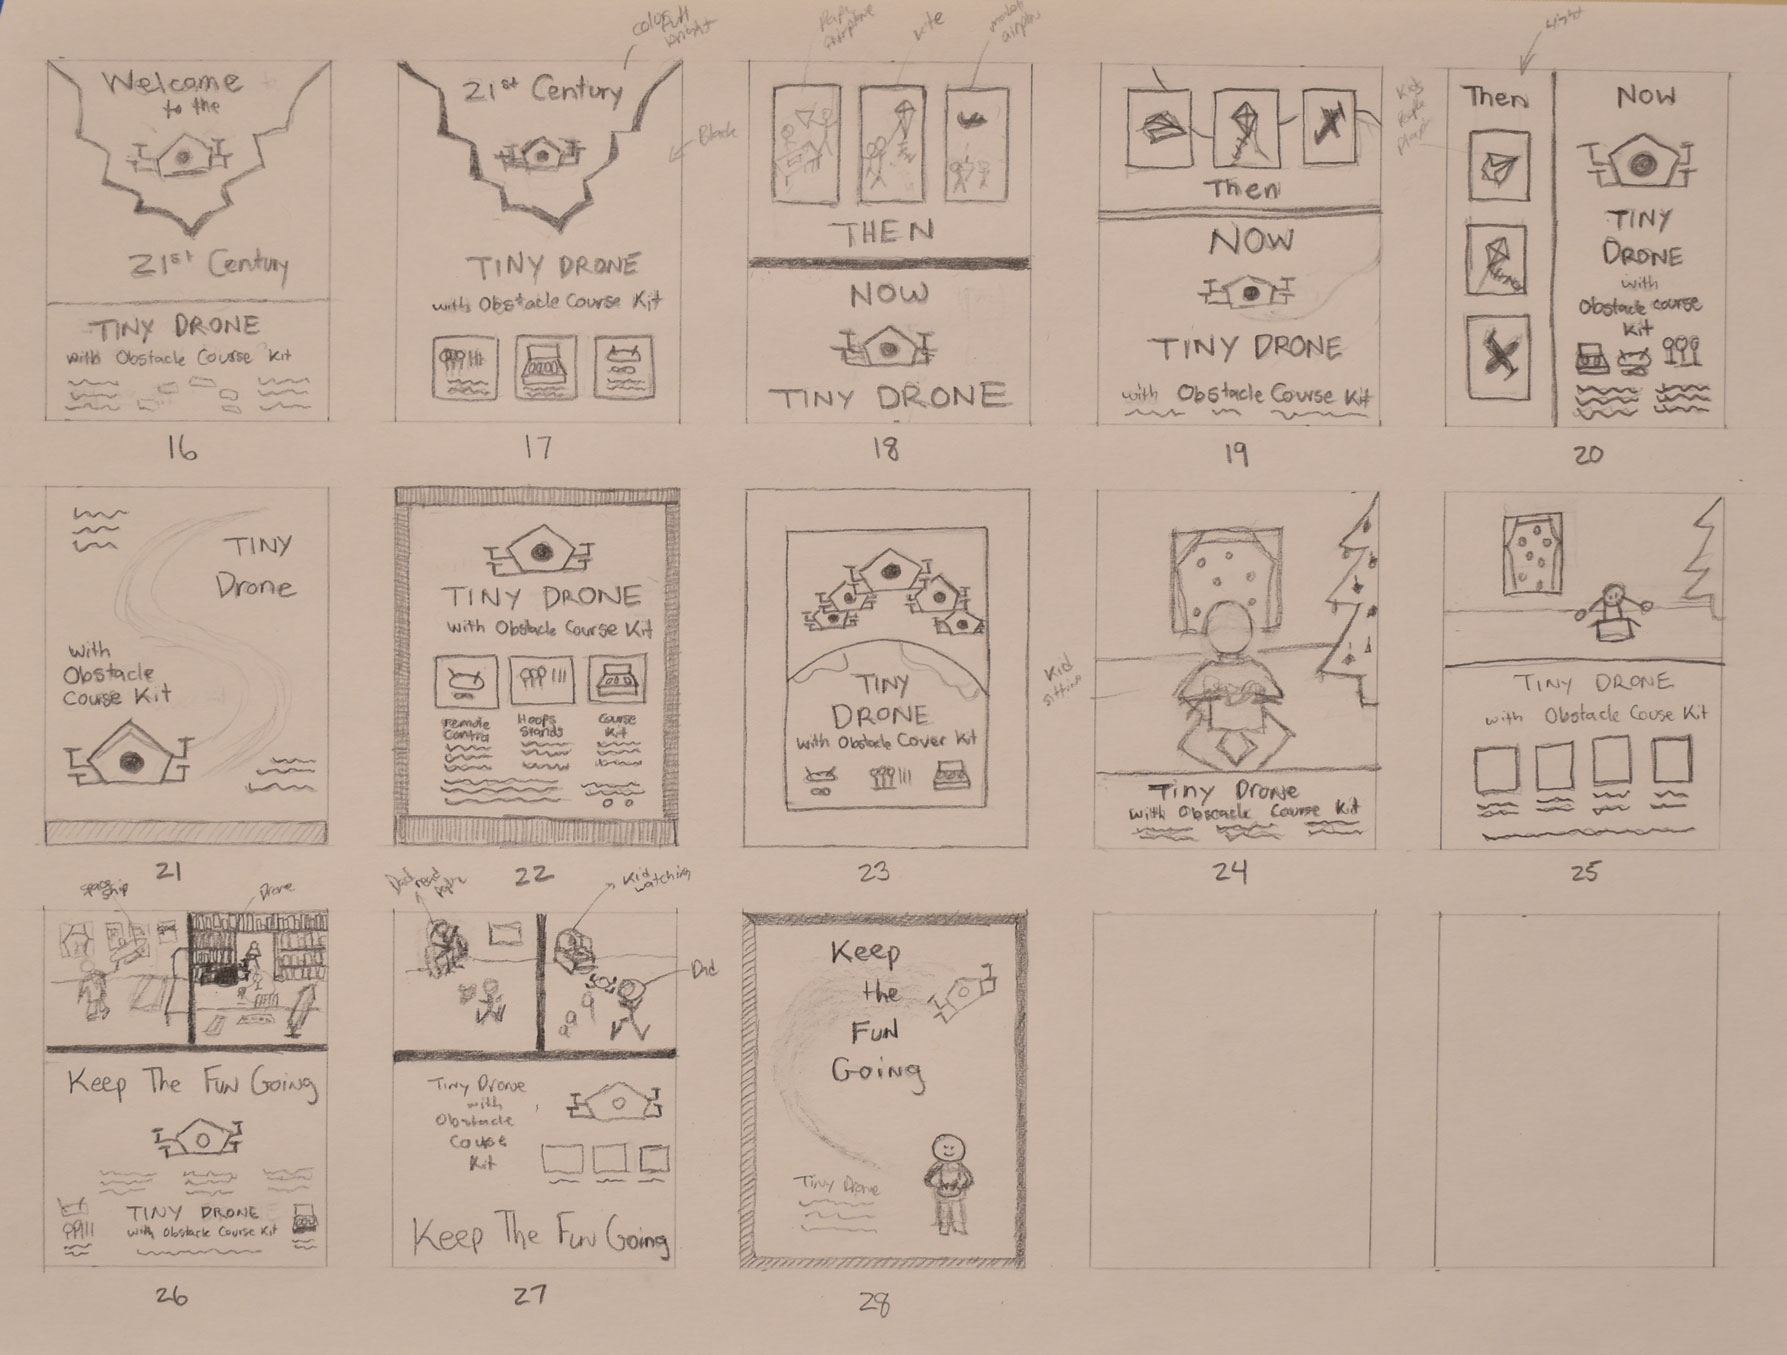 Welcome
to the
21st Century
TINY DRONE
with Obstacle Course Kit
16
colorfull
bright
Black
21st Century
TINY DRONE
with Obstacle Course Kit
17
Paper
airplane
kite
model
airplane
THEN
NOW
TINY DRONE
18
Then
NOW
TINY DRONE
with Obstacle Course Kit
19
Light
Then
NOW
TINY
DRONE
with
Obstacle course
Kit
20
TINY
Drone
with
Obstacle
Course Kit
21
TINY DRONE
with Obstacle Course Kit
remote
Control
Hoops
Stands
Course
Kit
22
TINY
DRONE
with Obstacle Cover Kit
23
Kid
sitting
Tiny Drone
with Obstacle Course Kit
24
TINY DRONE
with Obstacle Couse Kit
25
space
ship
Drone
Keep The Fun Going
TINY DRONE
with Obstacle Course Kit
26
Dad
read
Kid
watching
Dad
Tiny Drone
with
Obstacle
Couse
Kit
Keep The Fun Going
27
Keep
the
Fun
Going
Tiny Drone
28